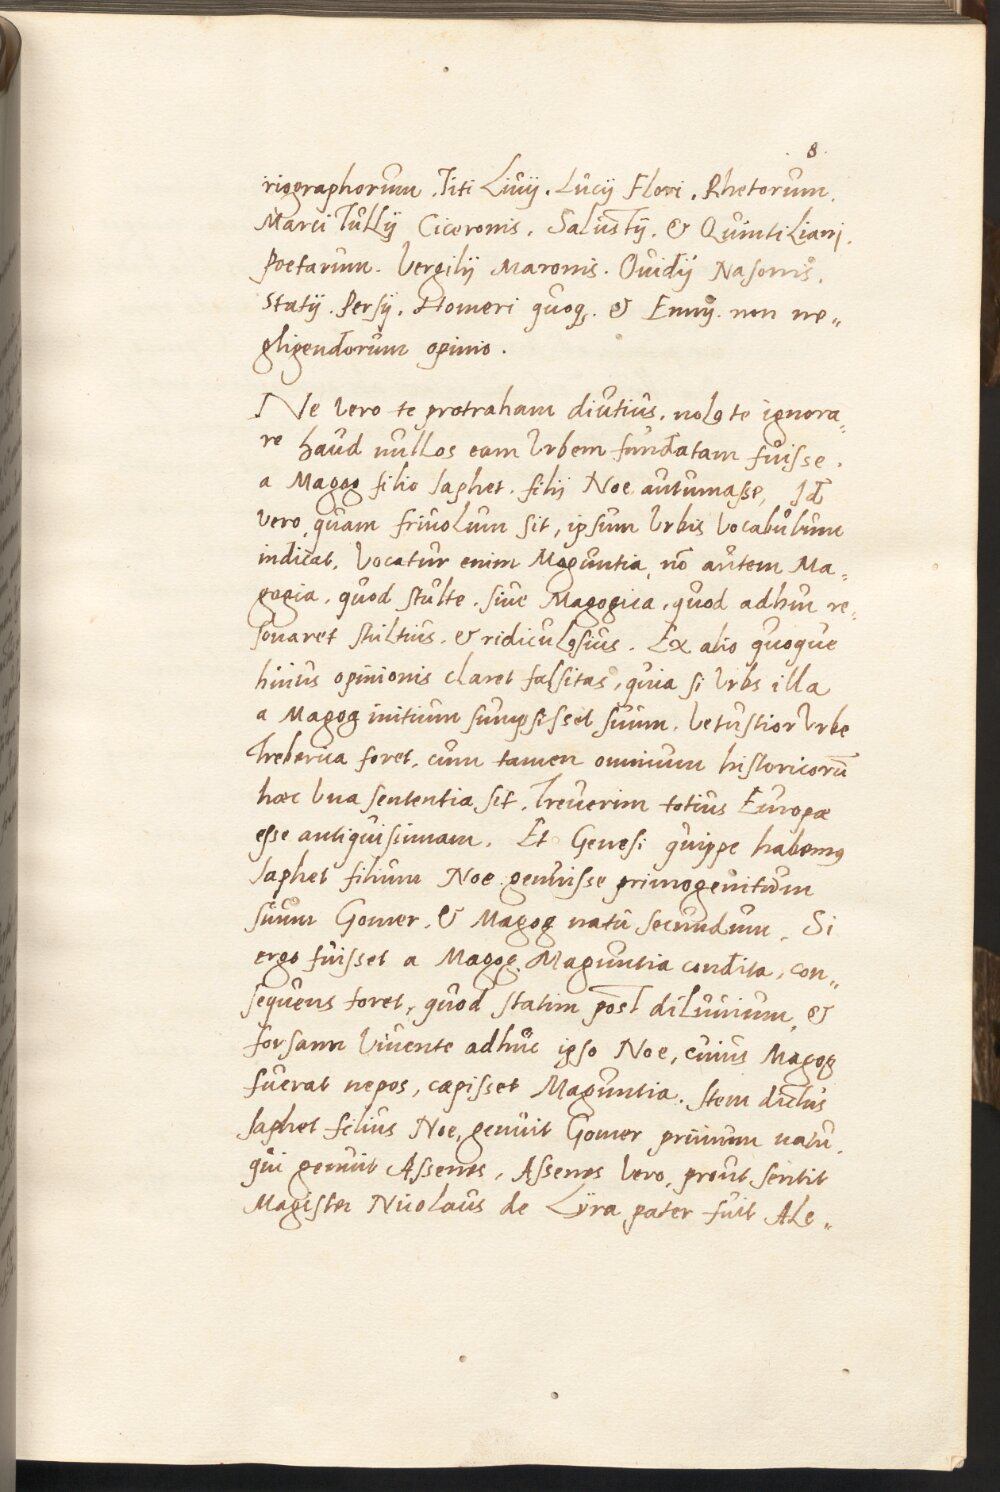 8.
riographorum. Titi Liuij. Lucij Flori. Rhetorum.
Marci Tullij Ciceronis. Salustij. & Quintiliani.
Poetarum. Vergilij Maronis. Ouidij Nasonis.
Statij. Persij. Homeri quoq. & Ennij. non ne„
gligendorum opinio.
Ne vero te protraham diutius, nolo te ignora„
re haud nullos eam Vrbem fundatam fuisse.
a Magog filio Iaphet. filij Noe autumasse, Id
vero, quam friuolum sit, ipsum Vrbis vocabulum
indicat. Vocatur enim Maguntia, nō autem Ma„
gogia. quod stulte. siue Magogica, quod adhuc re„
sonaret stultius. & ridiculosius. Ex alio quoque
huius opinionis claret falsitas, quia si Vrbs illa
a Magog initium sumpsisset suum. Vetustior Vrbe
Treberica foret. cum tamen omnium historicorū
hæc vna sententia sit. Treuerim totius Europæ
esse antiquissimam. Et Genesi quippe habemus
Iaphet filium Noe genuisse primogenitum
suum Gomer. & Magog natu secundum. Si
ergo fuisset a Magog. Maguntia condita, con„
sequens foret, quod statim post diluuium, &
forsann viuente adhuc ipso Noe, cuius Magog
fuerat nepos, cæpisset Maguntia. Item dictus
Iaphet filius Noe, genuit Gomer primum natu,
qui genuit Assenes, Assenes vero, prout sentit
Magister Nicolaus de Lÿra pater fuit Ale„